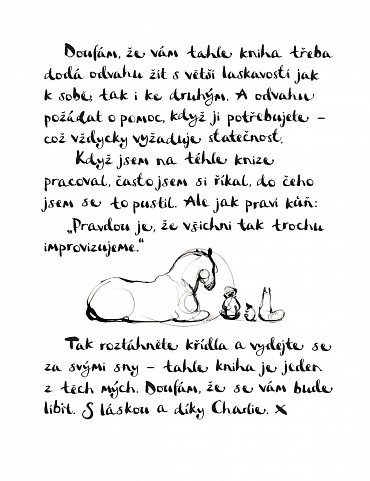 Doufám, že vám tahle kniha třeba
dodá odvahu žít s větší laskavostí jak
k sobě, tak i ke druhým. A odvahu
požádat o pomoc, když ji potřebujete –
což vždycky vyžaduje statečnost.
Když jsem na téhle knize
pracoval, často jsem si říkal, do čeho
jsem se to pustil. Ale jak praví kůň:
„Pravdou je, že všichni tak trochu
improvizujeme.“
Tak roztáhněte křídla a vydejte se
za svými sny – tahle kniha je jeden
z těch mých. Doufám, že se vám bude
líbit. S láskou a díky Charlie. X